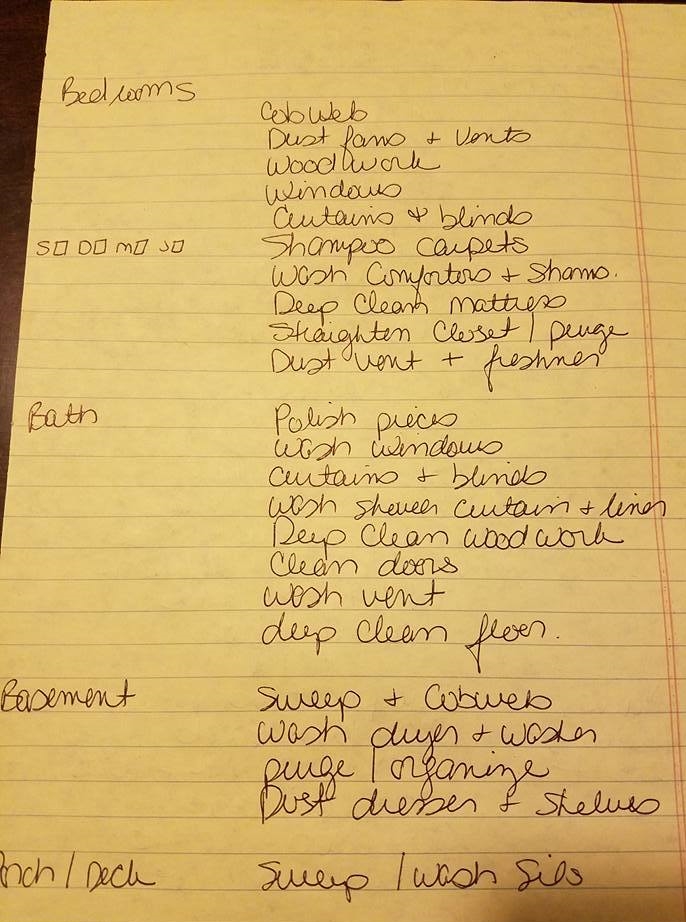 Bedrooms
Cobweb
Dust fans + Vents
Woodwork
windows
Curtains + blinds
S☐ D☐ M☐ J☐ Shampoo carpets
Wash Comforters + Shams.
Deep Clean mattress
Straighten Closet / purge
Dust vent + freshner
Bath Polish pieces
wash windows
Curtains + blinds
wash shower curtain + liner
Deep Clean woodwork
Clean doors
wash vent
deep clean floor.
Basement Sweep + Cobweb
Wash dryer + washer
purge / organize
Dust dresser + Shelves
Porch / Deck Sweep / wash Sils